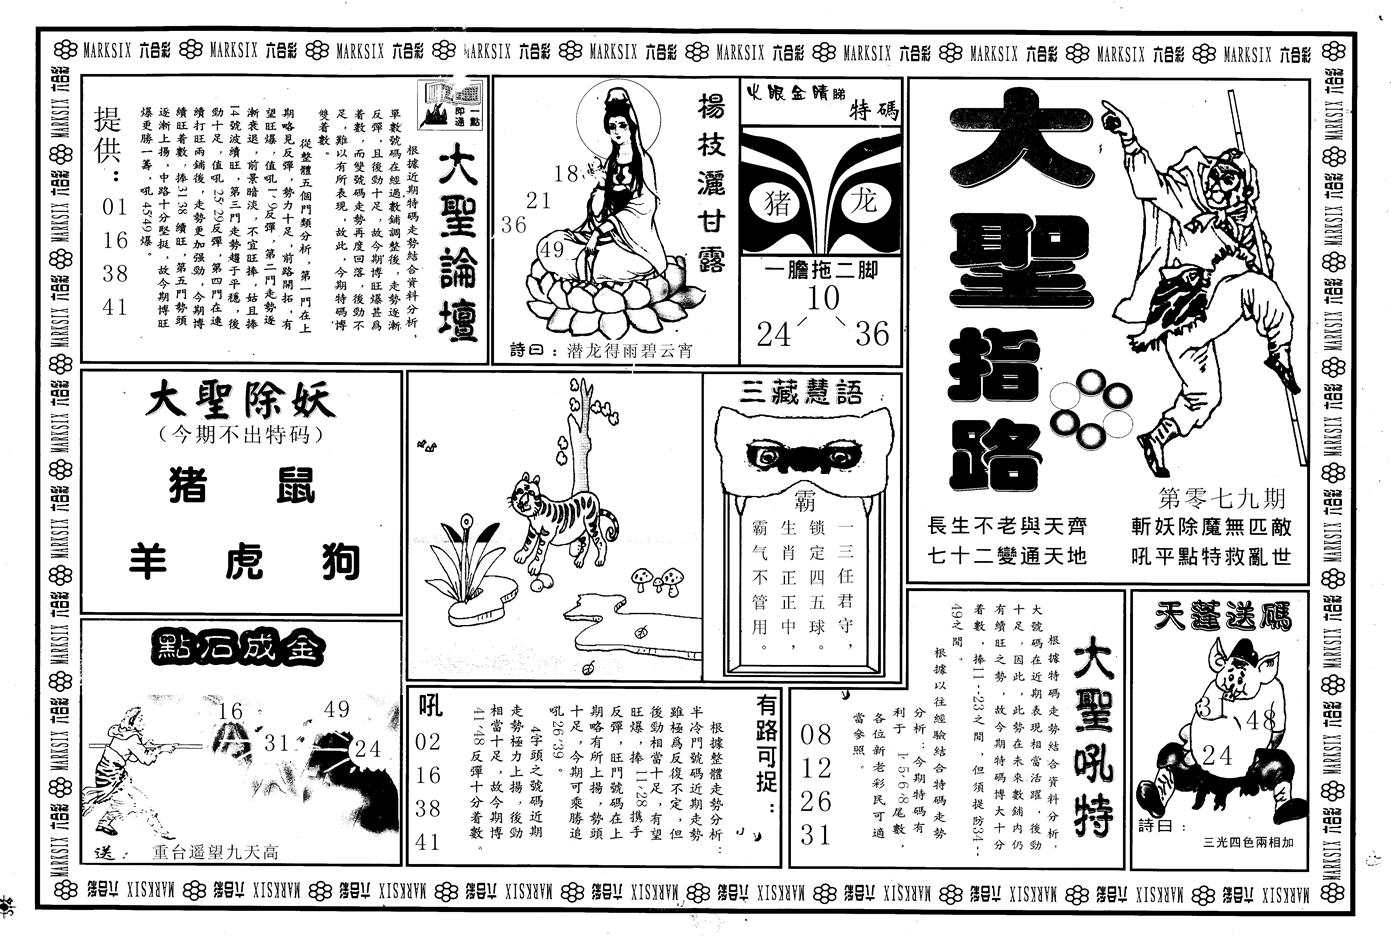 MARKSIX 六合彩 MARKSIX 六合彩 MARKSIX 六合彩 MARKSIX 六合彩 MARKSIX 六合彩 MARKSIX 六合彩 MARKSIX 六合彩 MARKSIX 六合彩 MARKSIX 六合彩 MARKSIX 六合彩
大聖指路
第零七九期
長生不老與天齊
七十二變通天地
斬妖除魔無匹敵
吼平點特救亂世
火眼金睛睇特碼
猪
龙
一膽拖二脚
10
24
36
楊枝灑甘露
18
21
36
49
詩曰：潜龙得雨碧云宵
一點即通
大聖論壇
根據近期特碼走勢結合資料分析，
單數號碼在經過數鋪調整後，走勢逐漸
反彈，且後勁十足，故今期博旺爆甚爲
着數，而雙號碼走勢再度回落，後勁不
足，難以有所表現，故此，今期特碼博
雙着數。
從整體五個門類分析，第一門在上
期略見反彈，勢力十足，前路開拓，有
望旺爆，值吼1·9反彈，第二門走勢逐
漸衰退，前景暗淡，不宜旺捧，姑且捧
14號波續旺，第三門走勢趨于平穩，後
勁十足，值吼25·29反彈，第四門在連
續打旺兩鋪後，走勢更加强勁，今期博
續旺着數，捧31·38續旺，第五門勢頭
逐漸上揚，中路十分堅挺，故今期博旺
爆更勝一籌，吼45·49爆。
提供：
01
16
38
41
大聖除妖
（今期不出特码）
猪 鼠
羊 虎 狗
三藏慧語
霸
一三任君守，
锁定四五球。
生肖正正中，
霸气不管用。
點石成金
16
49
31
24
送： 重台遥望九天高
有路可捉：
根據整體走勢分析：
半冷門號碼近期走勢
雖極爲反復不定，但
後勁相當十足，有望
旺爆，捧11·28携手
反彈，旺門號碼在上
期略有所上揚，勢頭
十足，今期可乘勝追
吼26·39。
4字頭之號碼近期
走勢極力上揚，後勁
相當十足，故今期博
41·48反彈十分着數。
吼
02
16
38
41
大聖吼特
根據特碼走勢結合資料分析，
大號碼在近期表現相當活躍，後勁
十足，因此，此勢在未來數鋪内仍
有續旺之勢，故今期特碼博大十分
着數，捧11--23之間，但須提防34--
49之間。
根據以往經驗結合特碼走勢
分析：今期特碼有
利于1·5·6·8尾數，
各位新老彩民可適
當參照。
08
12
26
31
天蓬送碼
3
48
24
詩曰：
三光四色兩相加
MARKSIX 六合彩 MARKSIX 六合彩 MARKSIX 六合彩 MARKSIX 六合彩 MARKSIX 六合彩 MARKSIX 六合彩 MARKSIX 六合彩 MARKSIX 六合彩 MARKSIX 六合彩 MARKSIX 六合彩